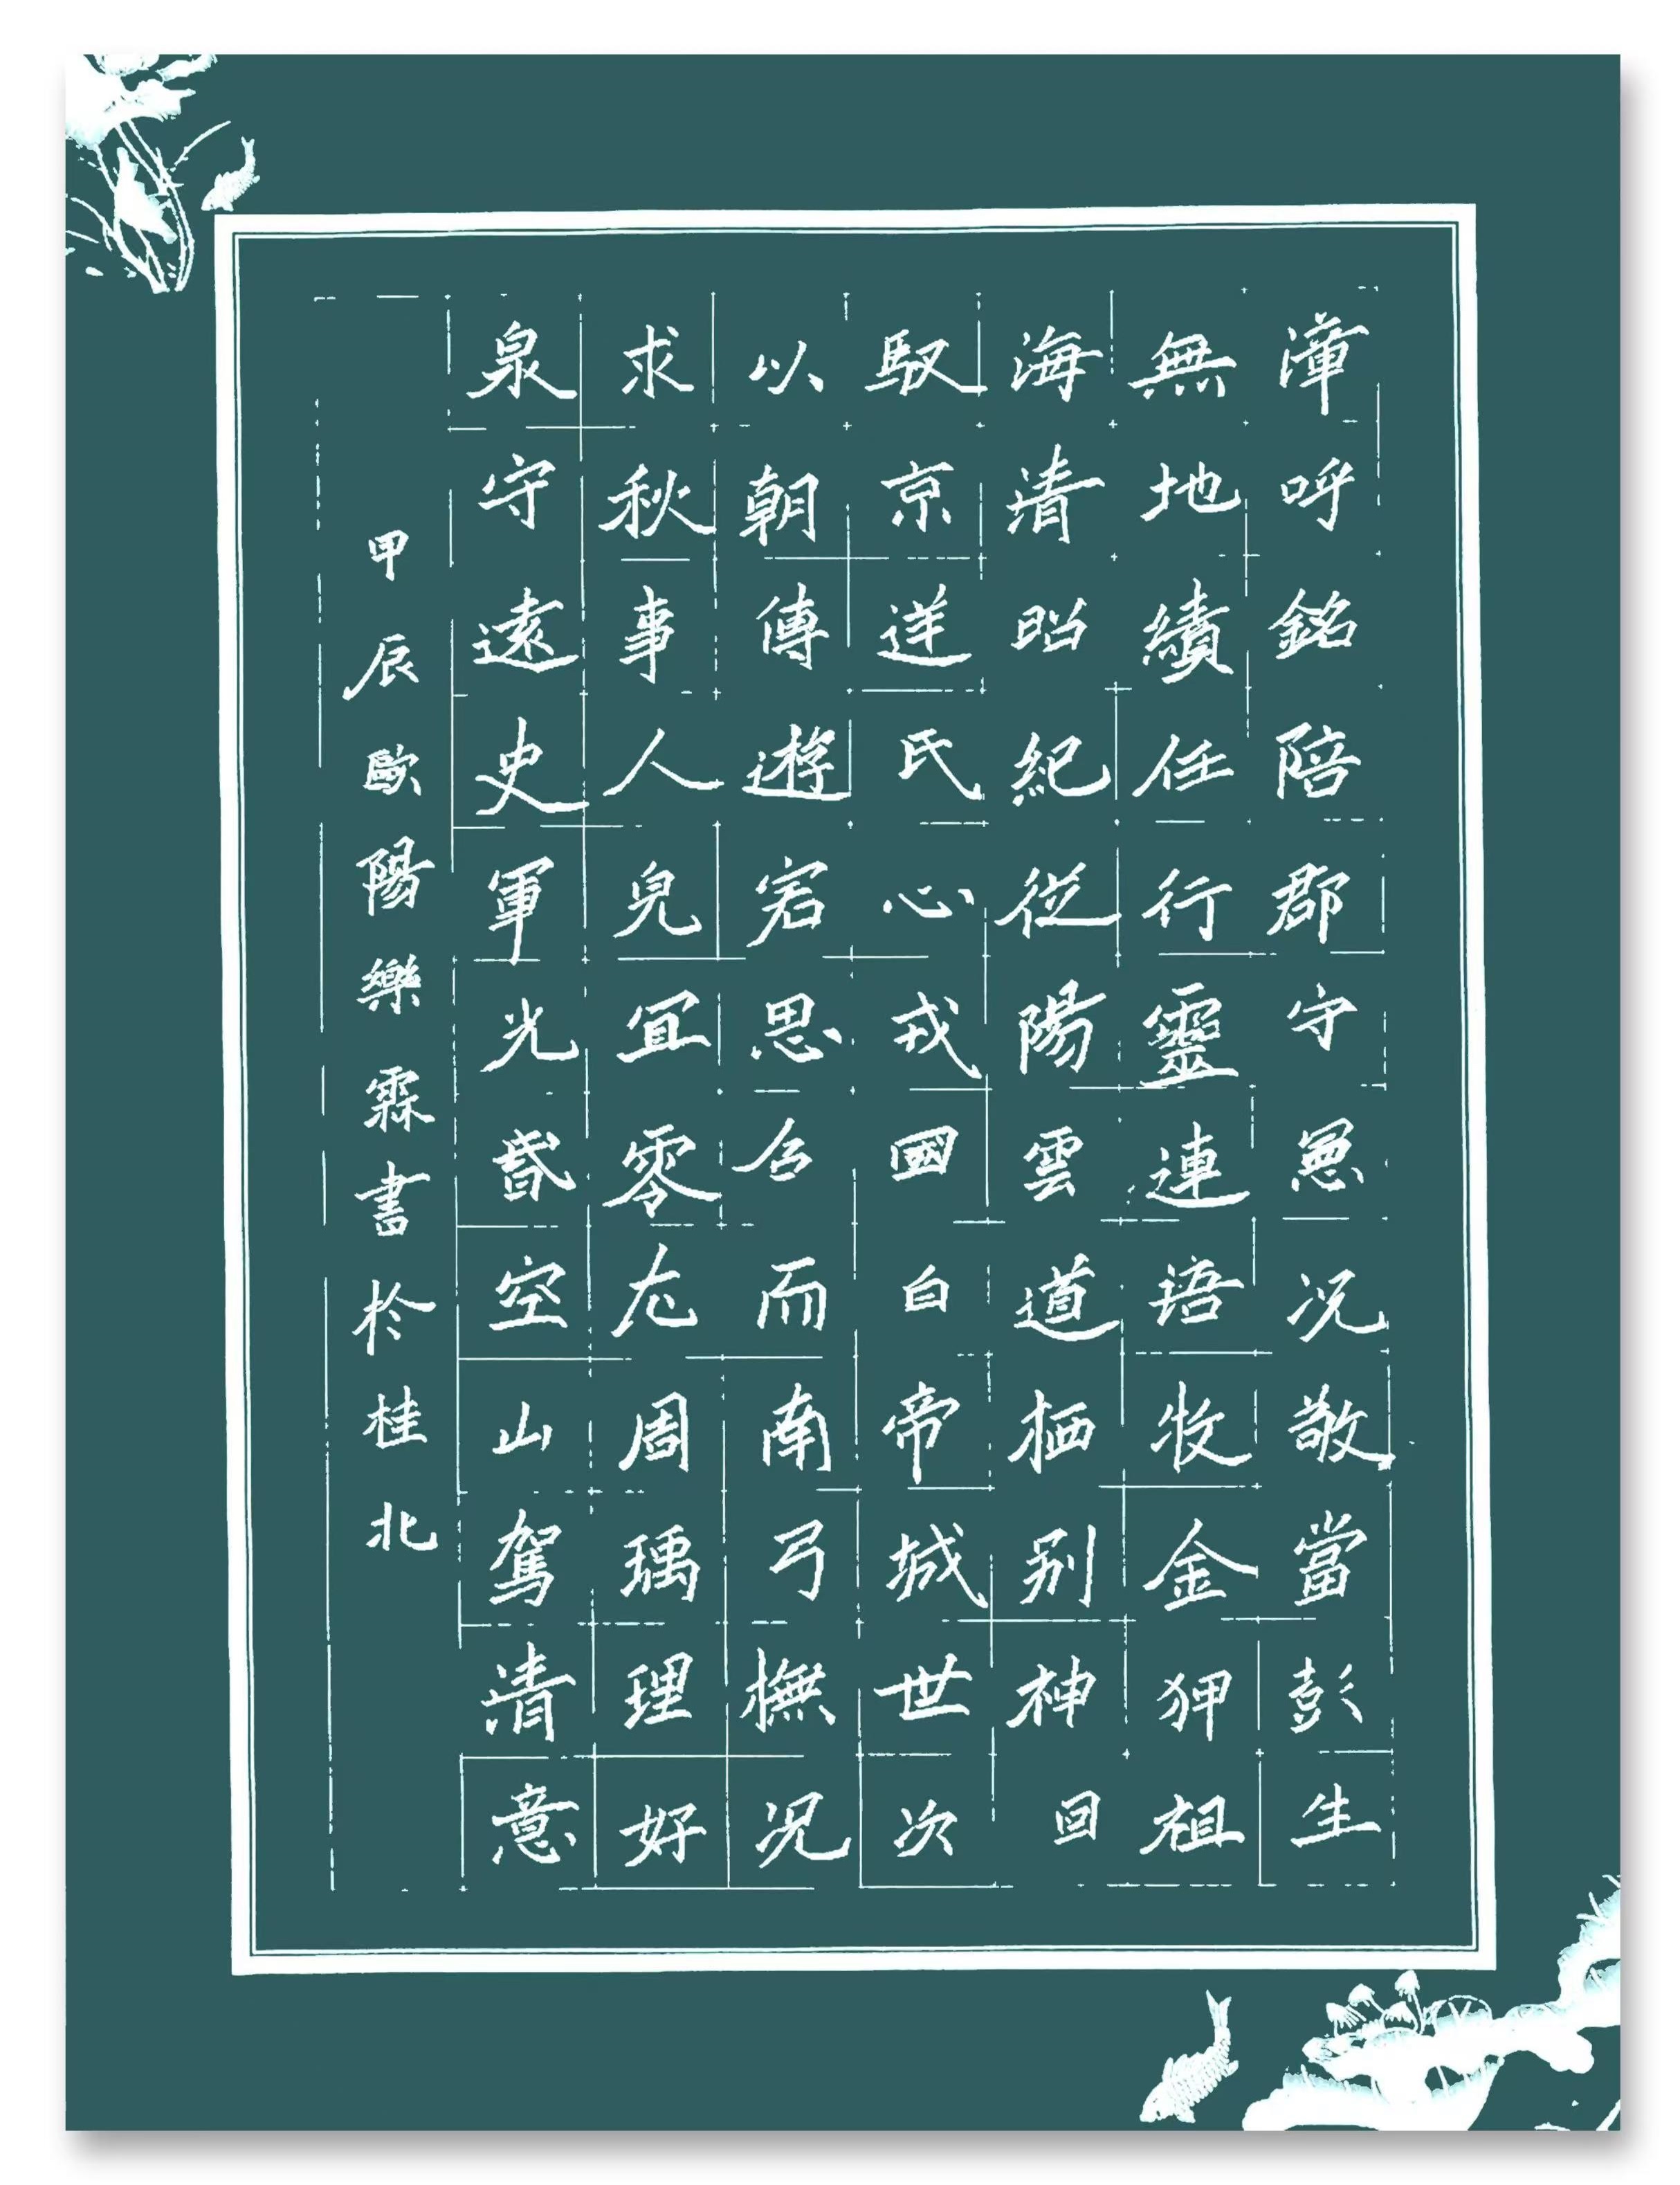 渾呼銘陪郡守愚況敬當彭生
無地續任行靈連語牧金狎祖
海清昭紀從陽雲道栖别神回
馭京送氏心戎國白帝城世次
以朝傳遊宕思召而南弓撫况
求秋事人兒宜零尨周瑀理好
泉守遠史軍光貳空山駕清意
甲辰歐陽樂霖書於桂北